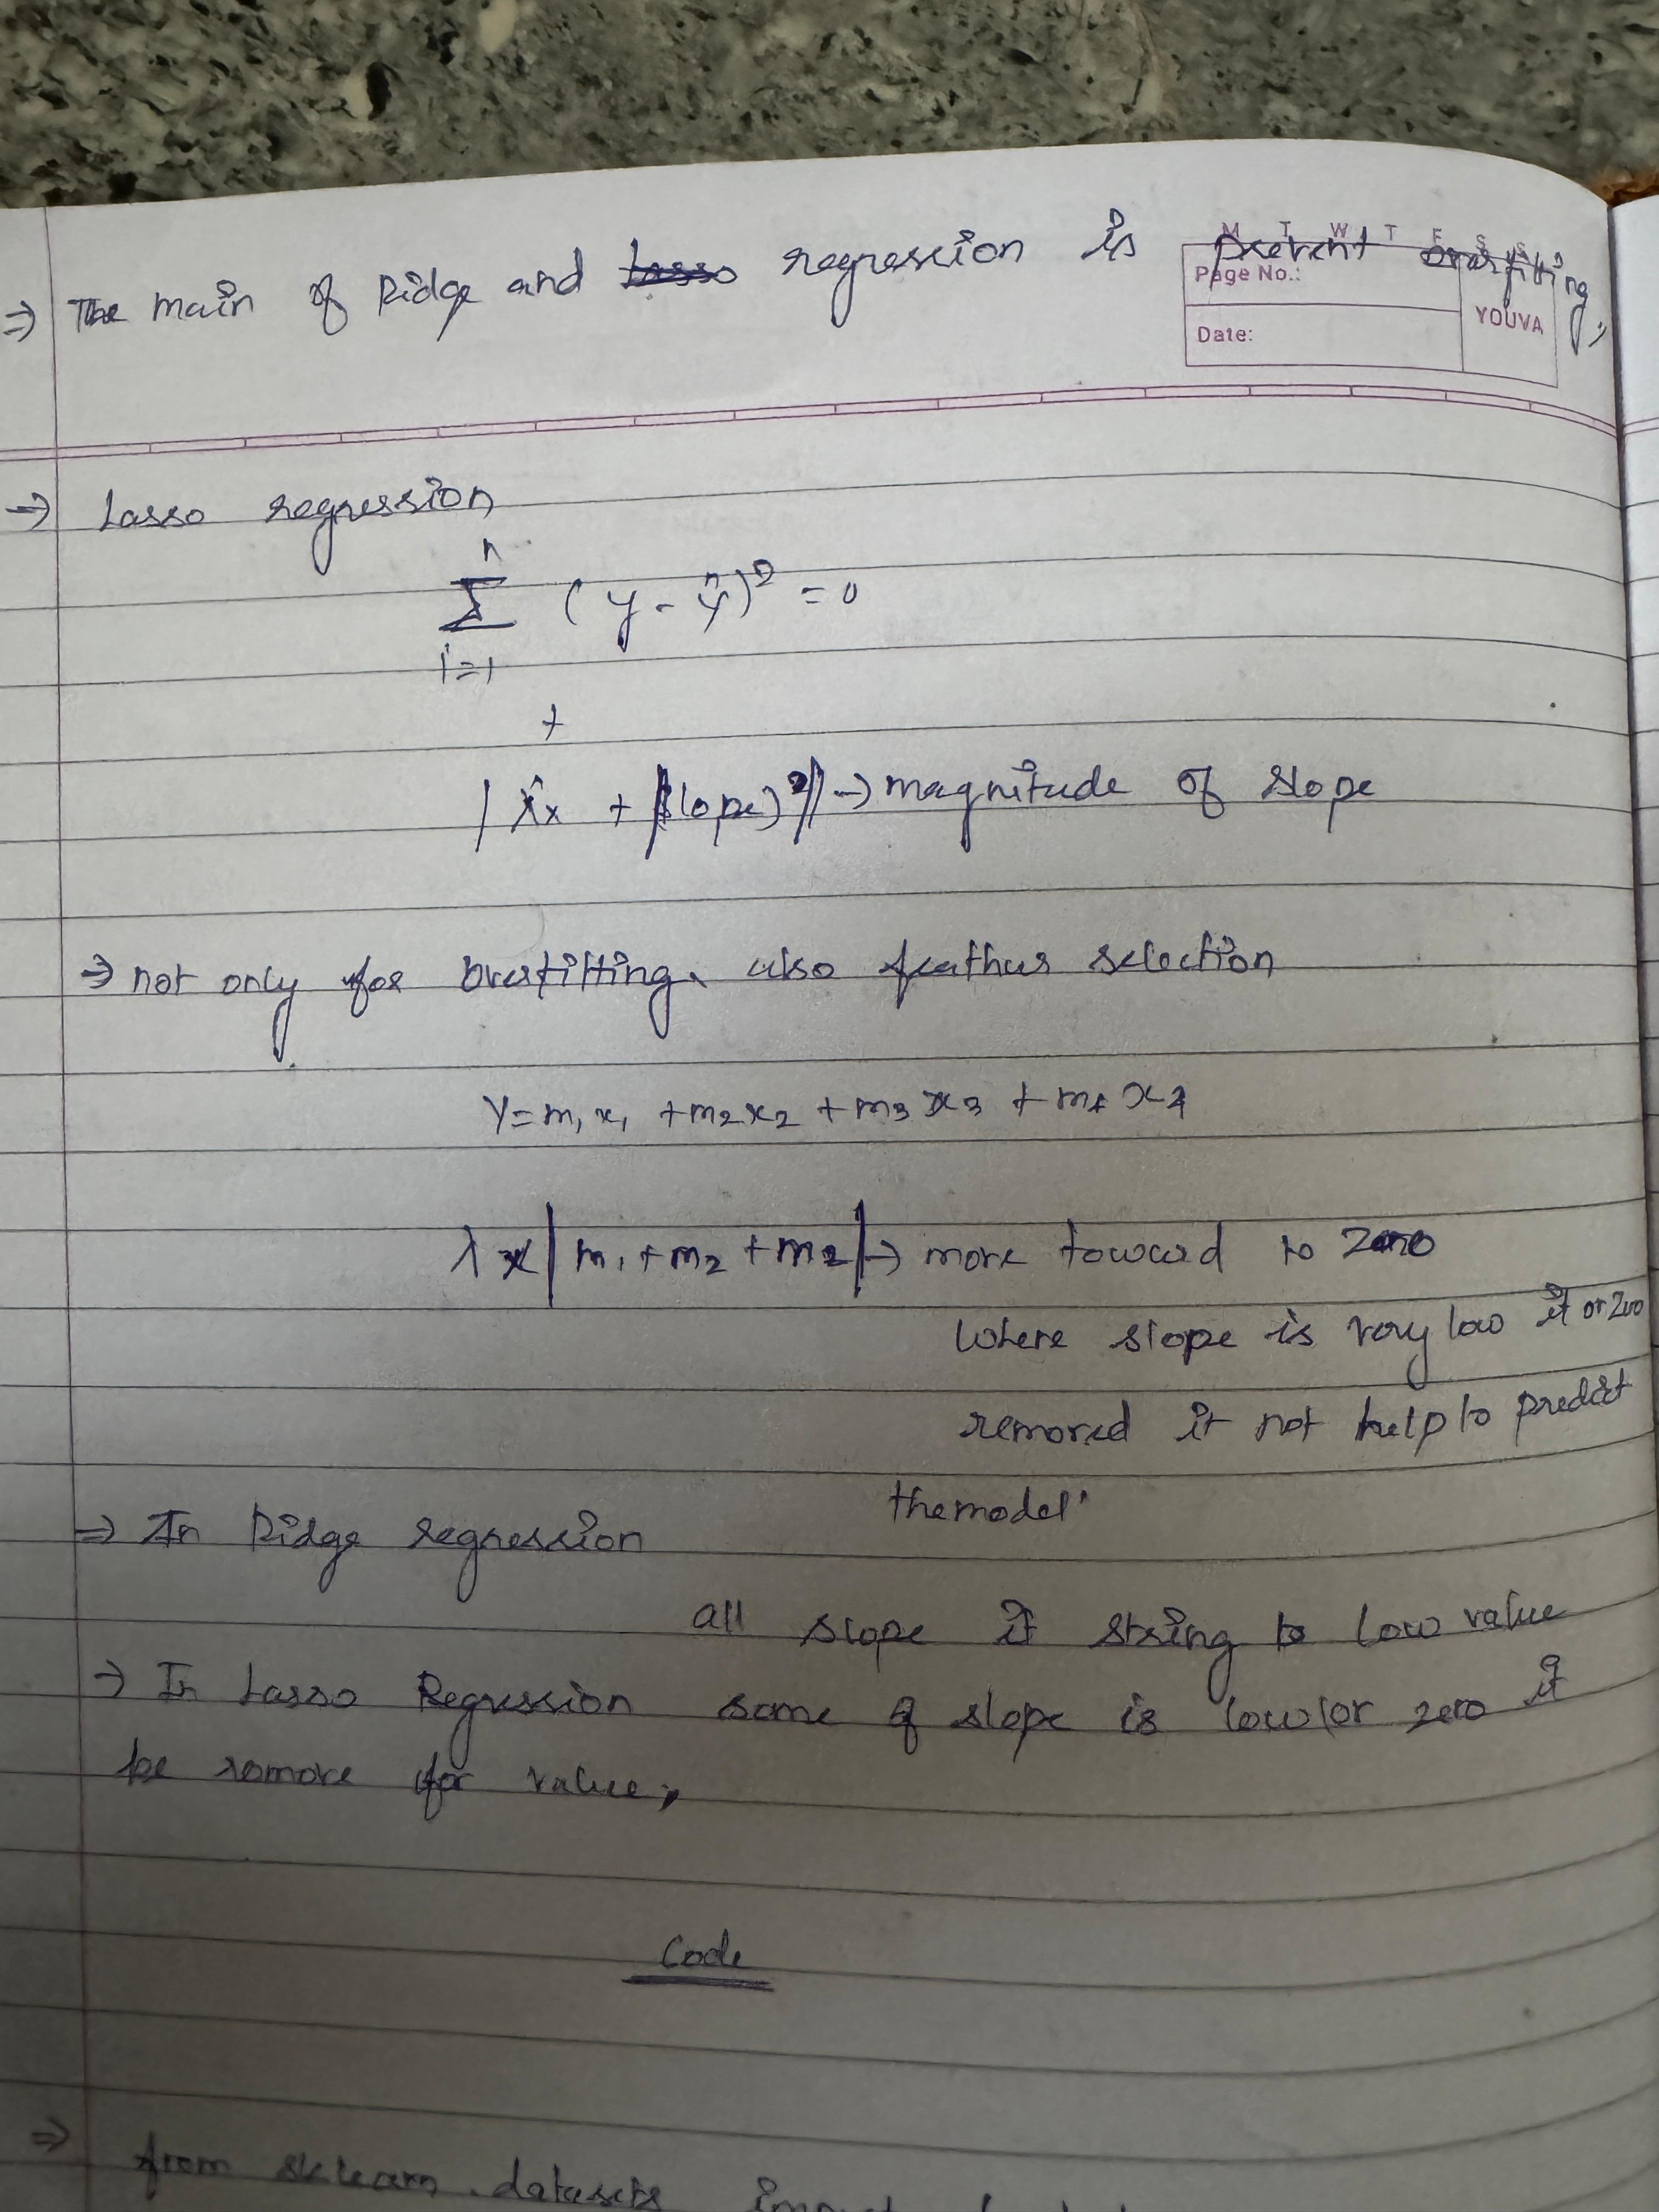 M T W T F S S
Page No.:
YOUVA
Date:
⇒ The main of Ridge and Lasso regression is prevent overfitting,
→ Lasso regression
n
∑ (y - ŷ)² = 0
i=1
+
→ magnitude of slope
⇒ not only for overfitting, also feathur selection
Y = m₁x₁ + m₂x₂ + m₃x₃ + m₄x₄
λ x | m₁ + m₂ + m₂ | → more toward to zero
where slope is very low it or zero
removed it not help to predict
the model.
⇒ In Ridge regression
all slope it string to low value
→ In Lasso Regression some of slope is low or zero it
be remove for value,
Code
⇒ from sklearn.datasets